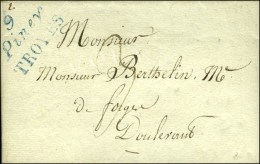 9
Piney
TROYES
Monsieur
Monsieur Berthelin, M.e
de forges
Doulevant